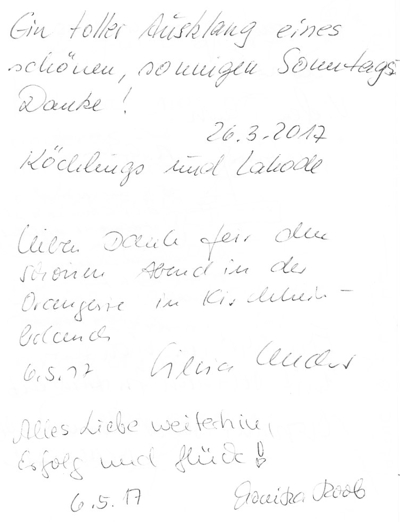 Ein toller Ausklang eines
schönen, sonnigen Sonntags
Danke!
26.3.2017
Köchlings und
Lieben Dank für den
schönen Abend in der
Orangerie in Kirchheim-
bolanden
6.5.17
Alles Liebe weiterhin,
Erfolg und Glück!
6.5.17